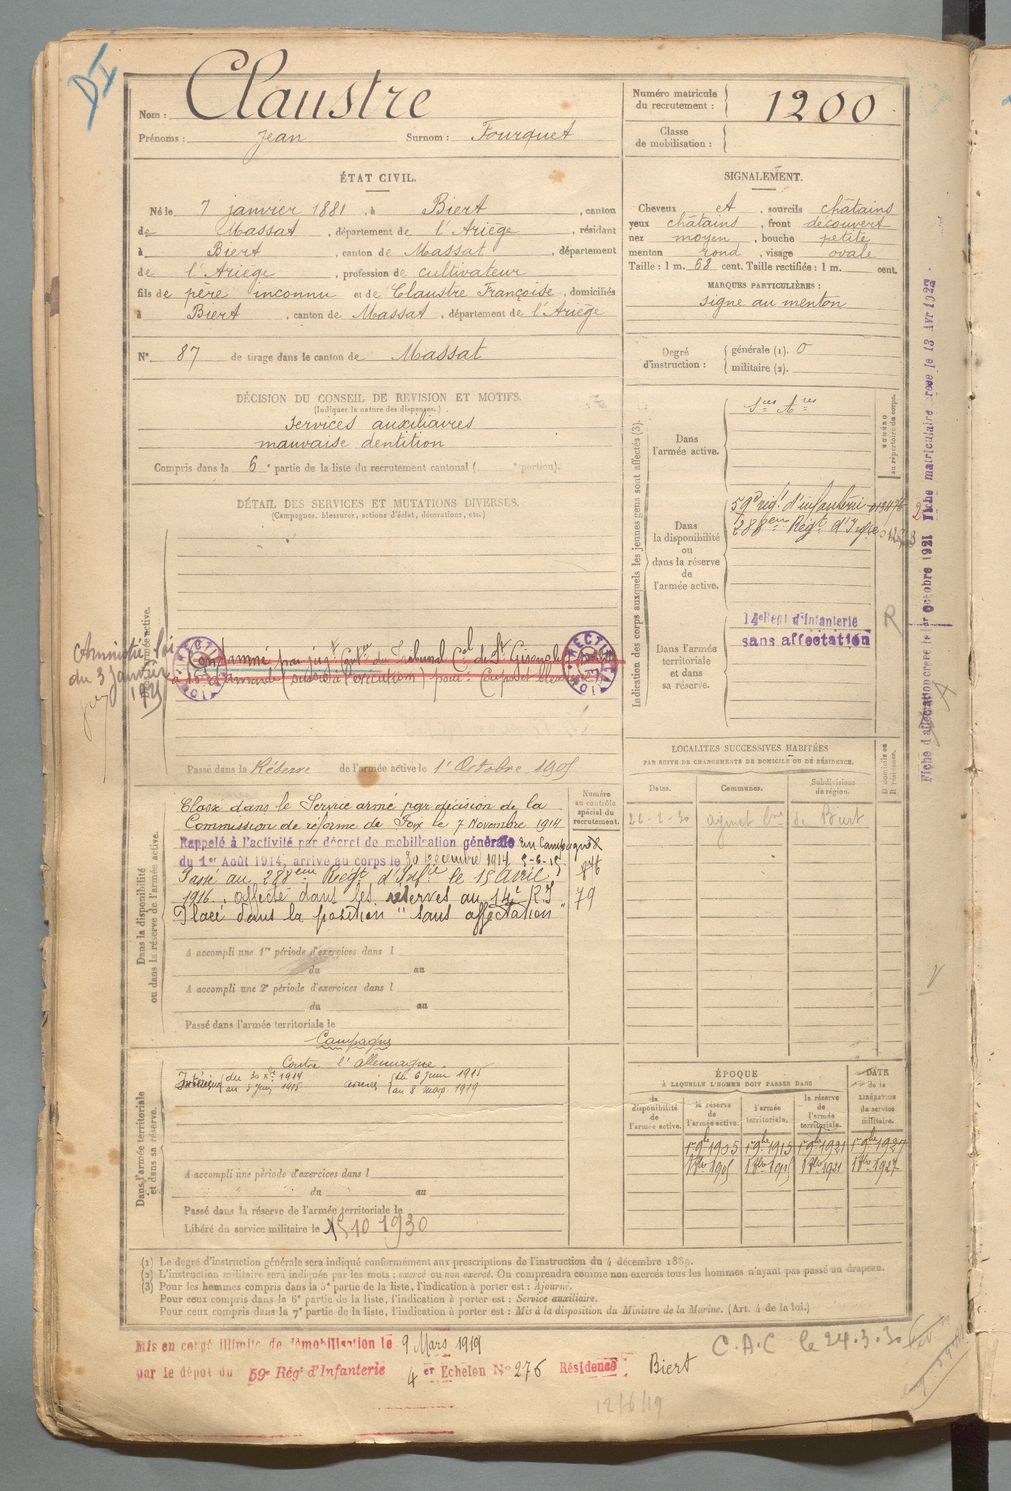 DI
Nom : Claustre
Prénoms : Jean Surnom : Fourquet
Numéro matricule du recrutement : 1200
Classe de mobilisation :
ÉTAT CIVIL.
Né le 7 janvier 1881, à Biert, canton
de Massat, département de l'Ariège, résidant
à Biert, canton de Massat, département
de l'Ariège, profession de cultivateur
fils de père inconnu et de Claustre Françoise, domiciliés
à Biert, canton de Massat, département de l'Ariège
N° 87 de tirage dans le canton de Massat
SIGNALEMENT.
Cheveux et, sourcils châtains
yeux châtains, front découvert
nez moyen, bouche petite
menton rond, visage ovale
Taille : 1 m. 68 cent. Taille rectifiée : 1 m. cent.
MARQUES PARTICULIÈRES :
signe au menton
Degré d'instruction : générale (1). 0
militaire (2).
DÉCISION DU CONSEIL DE REVISION ET MOTIFS.
(Indiquer la nature des dispenses.)
Services auxiliaires
mauvaise dentition
Compris dans la 6e partie de la liste du recrutement cantonal ( e portion).
DÉTAIL DES SERVICES ET MUTATIONS DIVERSES.
(Campagnes, blessures, actions d'éclat, décorations, etc.)
Amnistié loi
du 3 Janvier
Condamné par jugt du Tribunal Cel de St Girons
à amende (sursis à l'exécution) pour
RECTIFICATION
Passé dans la Réserve de l'armée active le 1er Octobre 1905
Indication des corps auxquels les jeunes gens sont affectés (3).
NUMÉRO au répertoire du corps.
Dans l'armée active.
Sces Ares
Dans la disponibilité ou dans la réserve de l'armée active.
59e régt d'infanterie
288eme Regt d'Infie
Dans l'armée territoriale et dans sa réserve.
14e Régt d'Infanterie
sans affectation
R
Fiche matriculaire le 13 Avr 1922
Fiche d'affectation créée le 1er Octobre 1921
Dans la disponibilité ou dans la réserve de l'armée active.
Classé dans le Service armé par décision de la
Commission de réforme de Foix le 7 Novembre 1914
Rappelé à l'activité par décret de mobilisation générale En Campagne
du 1er Août 1914, arrivé au corps le 30 Décembre 1914
Passé au 288eme Regt d'Infie le 15 Avril
1916. affecté dans les réserves au 14e R.I 79
Placé dans la position "sans affectation"
A accompli une 1re période d'exercices dans l
du au
A accompli une 2e période d'exercices dans l
du au
Passé dans l'armée territoriale le
Numéro au contrôle spécial du recrutement.
LOCALITÉS SUCCESSIVES HABITÉES
PAR SUITE DE CHANGEMENTS DE DOMICILE OU DE RÉSIDENCE.
Dates. Communes. Subdivisions de région. D domicile ou R résidence.
Dans l'armée territoriale et dans sa réserve.
Campagne
Contre l'Allemagne
Intérieur du 30 Xbre 1914 au 5 Juin 1915
armées du 6 Juin 1915 au 8 mars 1919
A accompli une période d'exercices dans l
du au
Passé dans la réserve de l'armée territoriale le
Libéré du service militaire le 15 10 1930
ÉPOQUE
À LAQUELLE L'HOMME DOIT PASSER DANS
la disponibilité de l'armée active. la réserve de l'armée active. l'armée territoriale. la réserve de l'armée territoriale. DATE de la LIBÉRATION du service militaire.
(1) Le degré d'instruction générale sera indiqué conformément aux prescriptions de l'instruction du 4 décembre 1889.
(2) L'instruction militaire sera indiquée par les mots : exercé ou non exercé. On comprendra comme non exercés tous les hommes n'ayant pas passé un drapeau.
(3) Pour les hommes compris dans la 5e partie de la liste, l'indication à porter est : Ajourné.
Pour ceux compris dans la 6e partie de la liste, l'indication à porter est : Service auxiliaire.
Pour ceux compris dans la 7e partie de la liste, l'indication à porter est : Mis à la disposition du Ministre de la Marine. (Art. 4 de la loi.)
Mis en congé illimité de démobilisation le 9 Mars 1919
par le dépôt du 59e Régt d'Infanterie 4er Echelon N° 276 Résidence Biert
C.A.C le 24.3.30
12/6/19